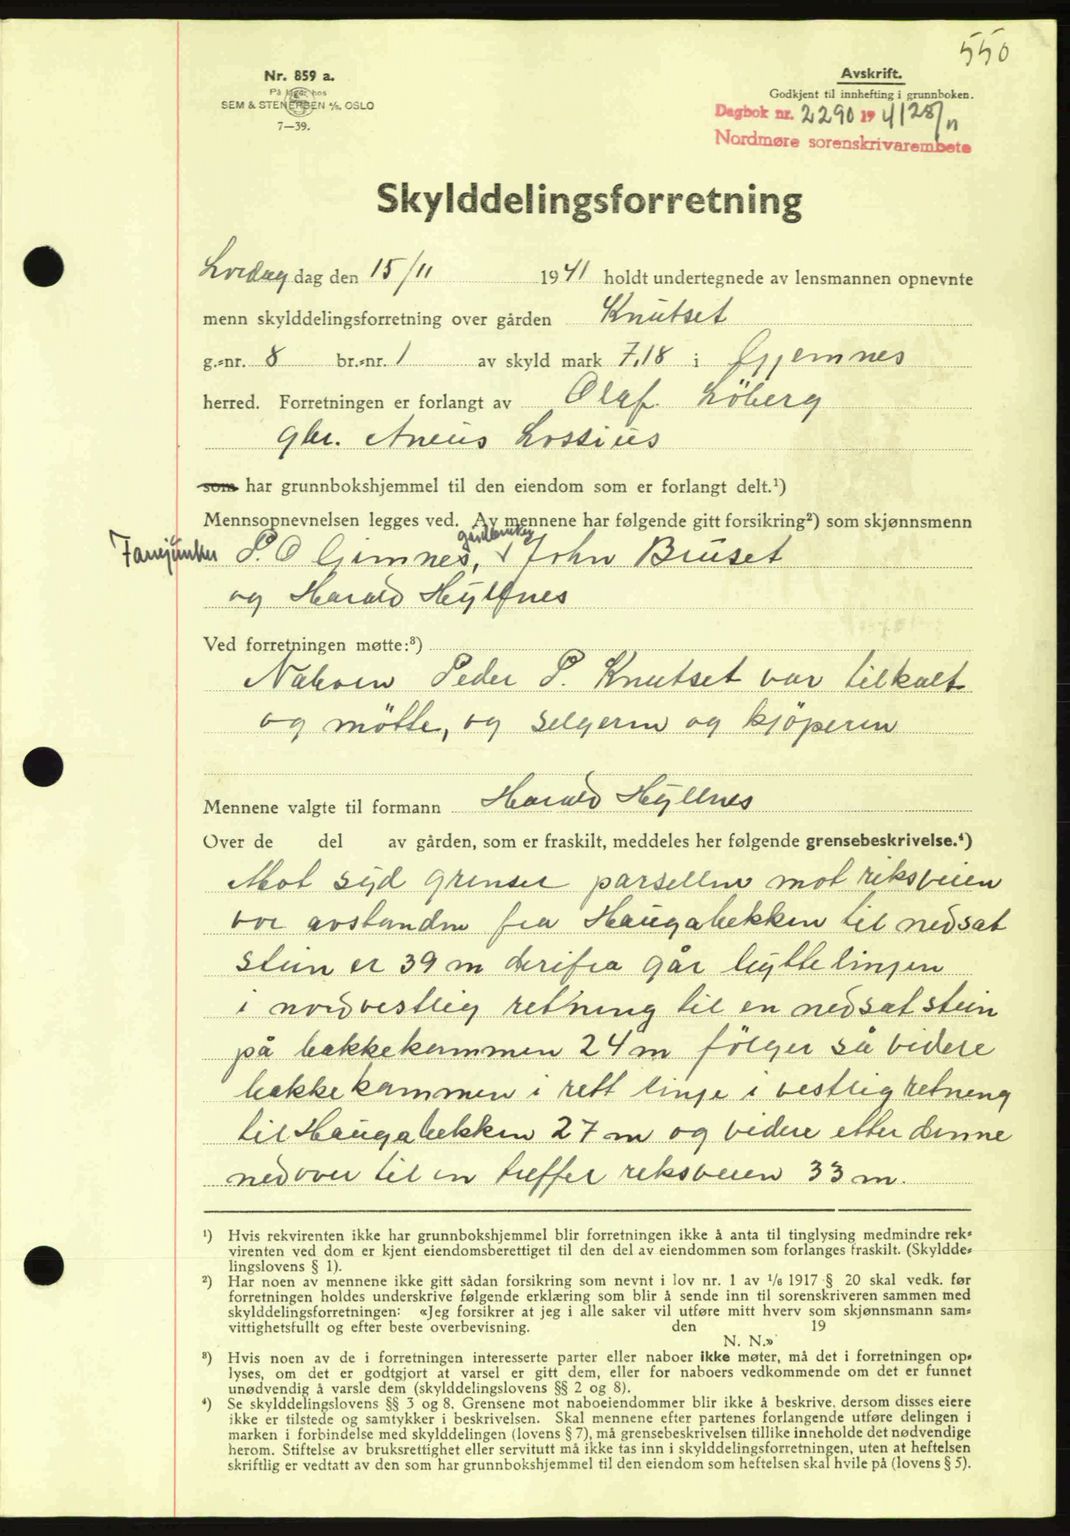 550
Nr. 859 a.
På lager hos
SEM & STENERSEN A/S, OSLO
7—39.
Avskrift.
Godkjent til innhefting i grunnboken.
Dagbok nr. 2290 19 41 28/11
Nordmøre sorenskrivarembete
Skylddelingsforretning
Lördag dag den 15/11 19 41 holdt undertegnede av lensmannen opnevnte
menn skylddelingsforretning over gården Knutset
g.-nr. 8 br.-nr. 1 av skyld mark 7,18 i Gjemnes
herred. Forretningen er forlangt av Olaf Löberg
gbr. Aneus Lossius
som har grunnbokshjemmel til den eiendom som er forlangt delt.¹)
Mennsopnevnelsen legges ved. Av mennene har følgende gitt forsikring²) som skjønnsmenn
gårdbruker
Fanejunker P. O Gimnes, John Bruset
og Harald Hyllnes
Ved forretningen møtte:³)
Naboen Peder P. Knutset var tilkalt
og møtte, og selgeren og kjöperen
Mennene valgte til formann Harald Hyllnes
Over de del av gården, som er fraskilt, meddeles her følgende grensebeskrivelse.⁴)
Mot syd grenser parsellen mot riksveien
vor avstanden fra Haugabekken til nedsat
stein er 39 m derifra går byttelinjen
i nordvestlig retning til en nedsat stein
på bakkekammen 24 m følger så videre
bakkekammen i rett linje i vestlig retning
til Haugabekken 27 m og videre etter denne
nedover til en treffer reksveien 33 m.
¹) Hvis rekvirenten ikke har grunnbokshjemmel blir forretningen ikke å anta til tinglysing medmindre rek-
virenten ved dom er kjent eiendomsberettiget til den del av eiendommen som forlanges fraskilt. (Skyldde-
lingslovens § 1).
²) Har noen av mennene ikke gitt sådan forsikring som nevnt i lov nr. 1 av 1/6 1917 § 20 skal vedk. før
forretningen holdes underskrive følgende erklæring som blir å sende inn til sorenskriveren sammen med
skylddelingsforretningen: «Jeg forsikrer at jeg i alle saker vil utføre mitt hverv som skjønnsmann sam-
vittighetsfullt og efter beste overbevisning. den 19
N. N.»
³) Hvis noen av de i forretningen interesserte parter eller naboer ikke møter, må det i forretningen op-
lyses, om det er godtgjort at varsel er gitt dem, eller for naboers vedkommende om det er funnet
unødvendig å varsle dem (skylddelingslovens §§ 2 og 8).
⁴) Se skylddelingslovens §§ 3 og 8. Grensene mot naboeiendommer blir ikke å beskrive, dersom disses eiere
ikke er tilstede og samtykker i beskrivelsen. Skal mennene efter partenes forlangende utføre delingen i
marken i forbindelse med skylddelingen (lovens § 7), må grensebeskrivelsen tillike inneholde det nødvendige
herom. Stiftelse av bruksrettighet eller servitutt må ikke tas inn i skylddelingsforretningen, uten at heftelsen
skriftlig er vedtatt av den som har grunnbokshjemmel til den eiendom som heftelsen skal hvile på (lovens § 5).